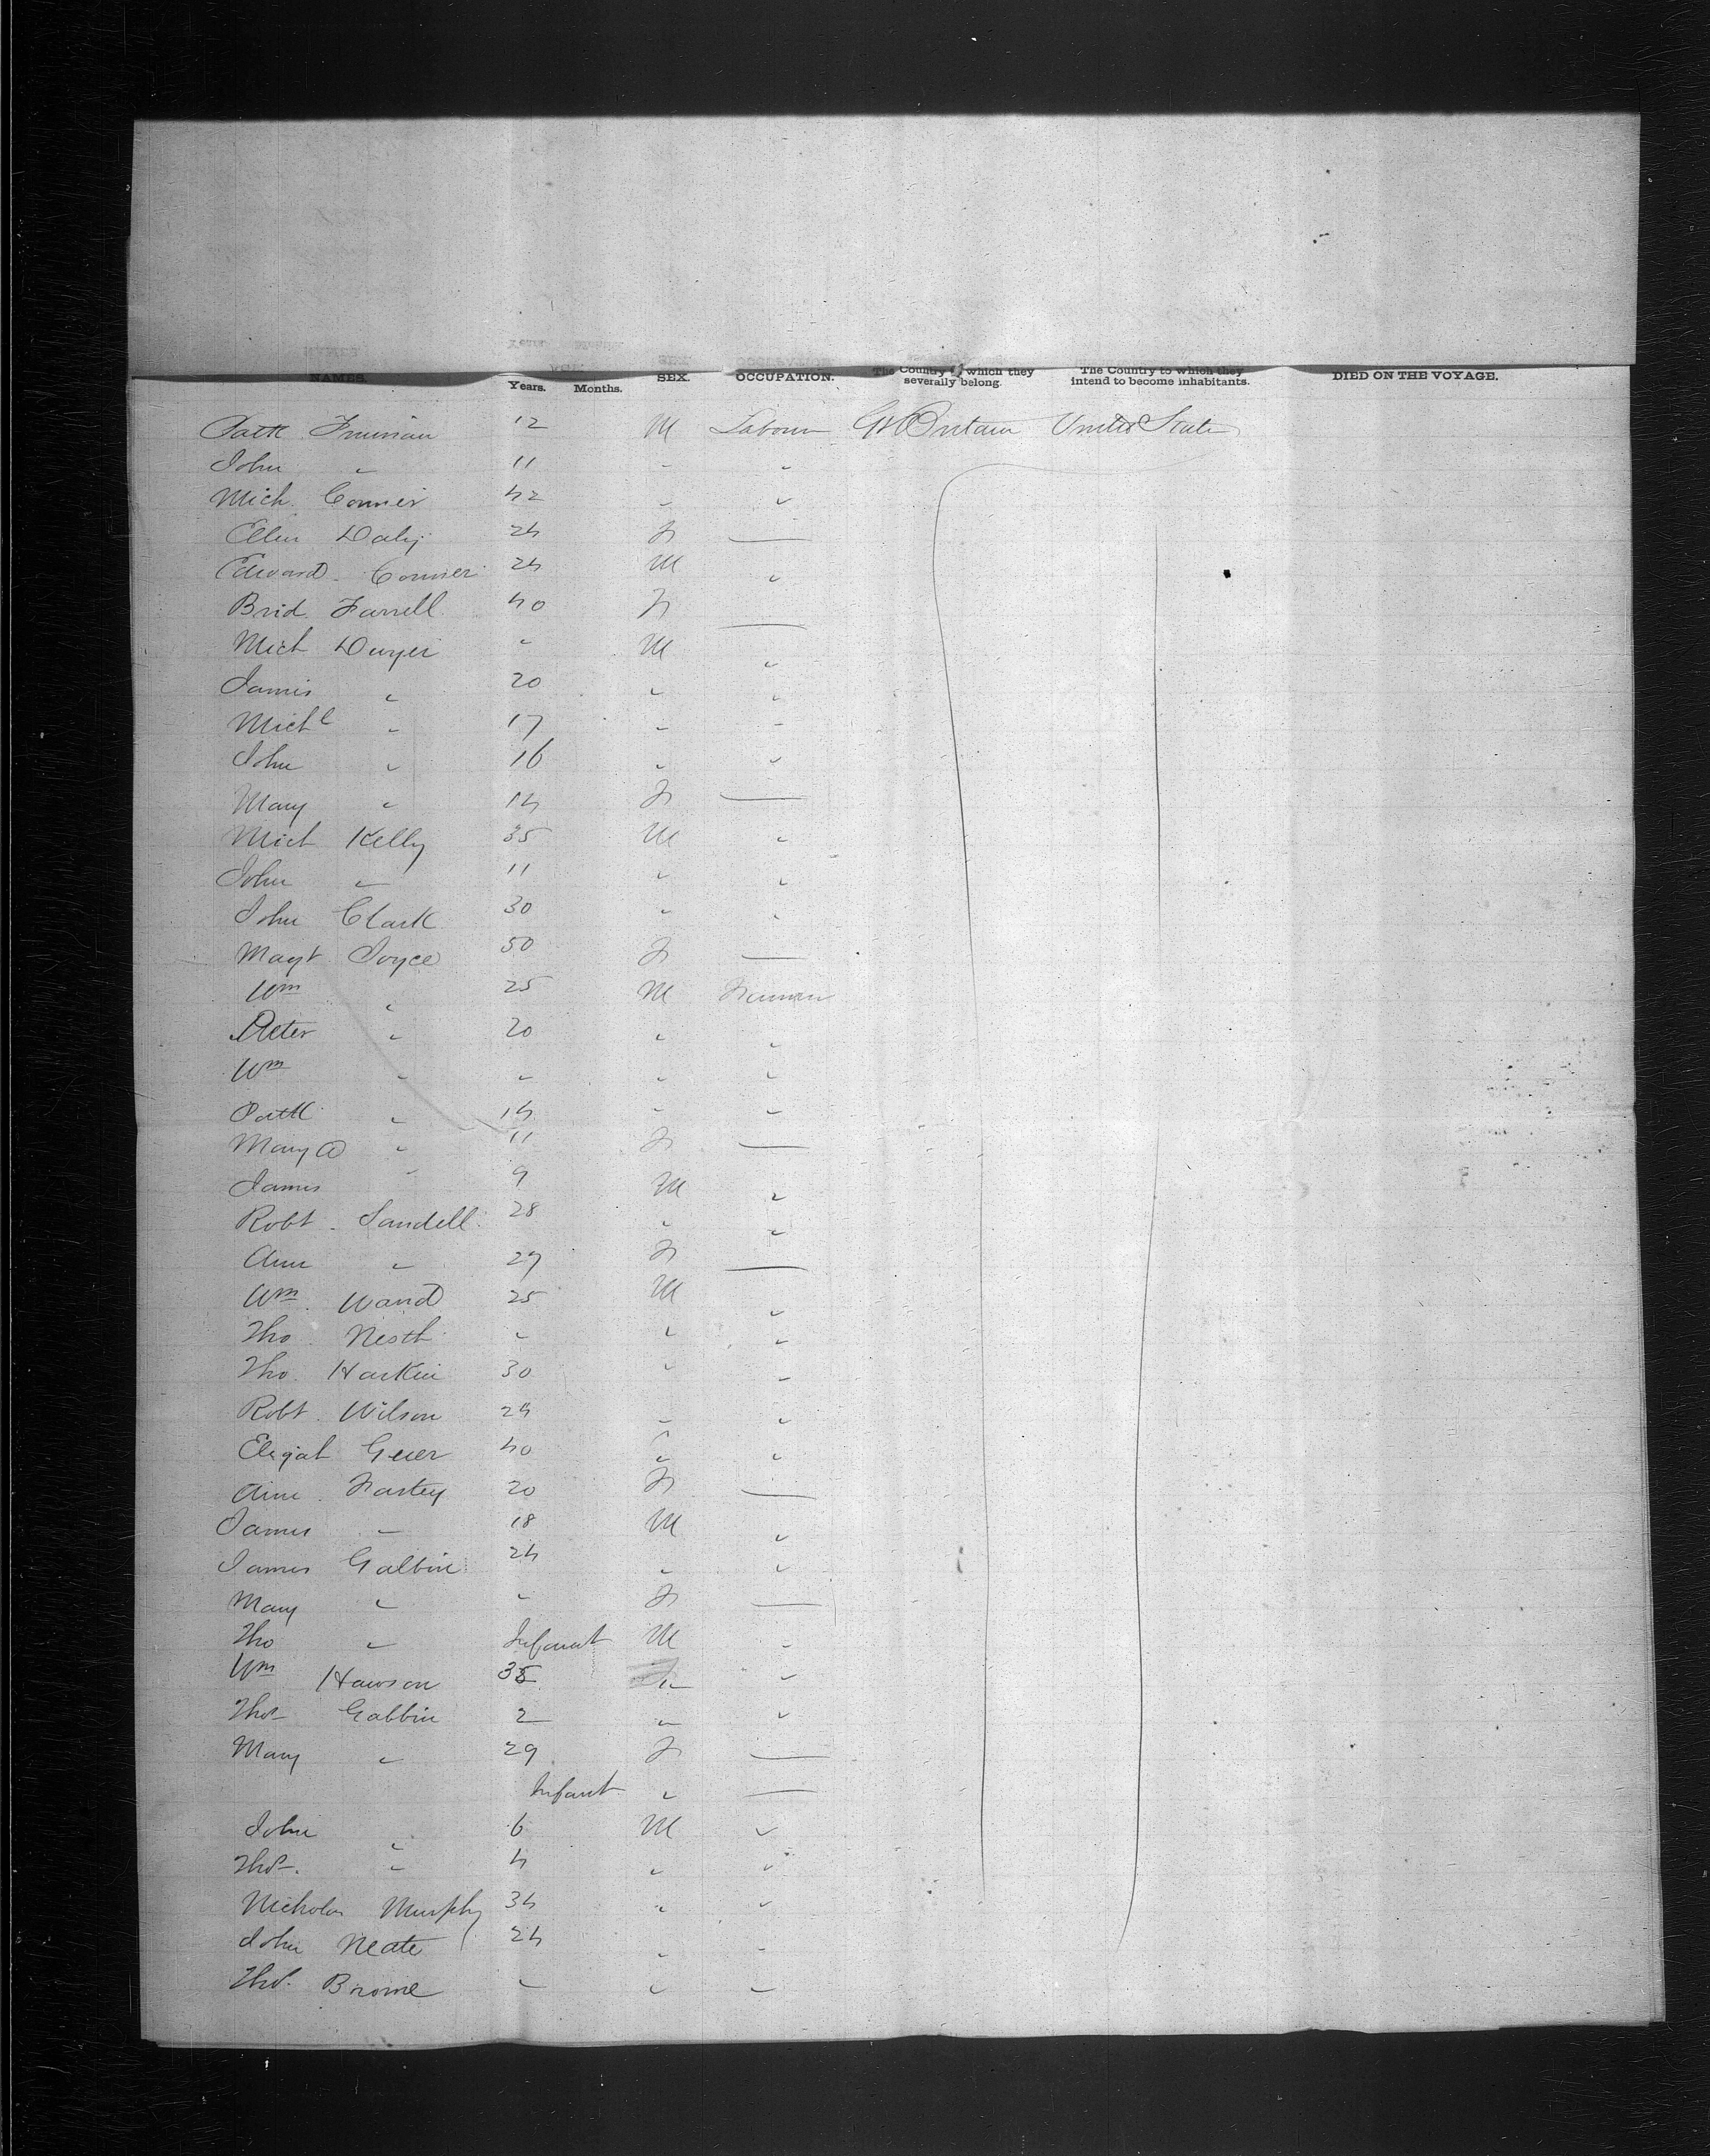 NAMES. Years. Months. SEX. OCCUPATION. The Country to which they severally belong. The Country to which they intend to become inhabitants. DIED ON THE VOYAGE.
Patk 12 M Labour Gt Britain United State
John " 11 " "
Mich. Conner 42 " "
Ellen Daly 24 F —
Edward Conner 24 M "
Brid Farrell 40 F —
Mich Dwyer " M "
James " 20 " "
Michl " 17 " "
John " 16 " "
Mary " 14 F —
Mich Kelly 35 M "
John " 11 " "
John Clark 30 " "
Magt Joyce 50 F —
Wm " 25 M
Peter " 20 " "
Wm " " " "
Patk " 14 " "
Mary A " 11 F —
James " 9 M "
Robt Sandell 28 " "
Ann " 29 F —
Wm Ward 25 M "
Tho " " "
Tho. Harkin 30 " "
Robt Wilson 24 " "
Elijah Geer 40 " "
Ann 20 F —
James " 18 M "
James Galbin 24 " "
Mary " " F —
Tho " Infant M "
Wm Hawson 35 " "
Thos Gabbin 2 " "
Mary " 29 F —
Infant " —
John " 6 M "
Thos. " 4 " "
Nicholas Murphy 34 " "
John Neate 24 " "
Thos. Brome " " "